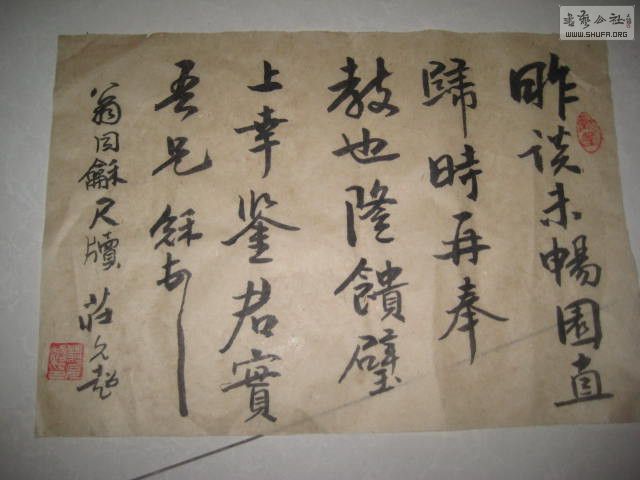 書藝公社
WWW.SHUFA.ORG
昨談未暢園直
歸時再奉
教也隆饋璧
上幸鑒君實
吾兄龢
翁同龢尺牘 莊